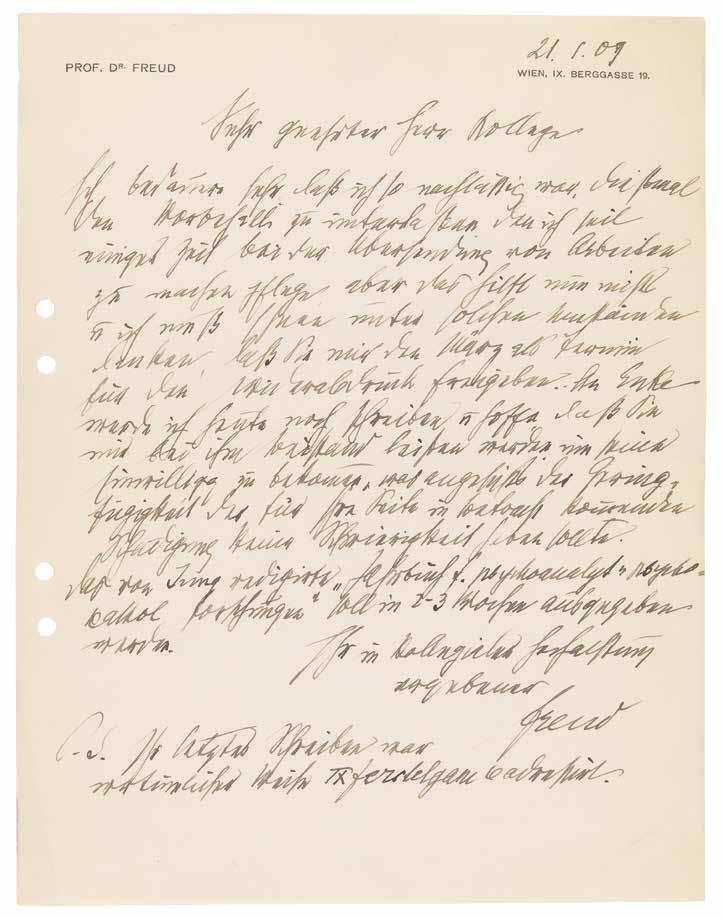 PROF. DR. FREUD
21. 1. 09
WIEN, IX. BERGGASSE 19.
Sehr geehrter Herr Kollege
Ich bedauere sehr daß ich so nachlässig war, diesmal
den Vorbehalt zu unterlassen den ich seit
einiger Zeit bei der Übersendung von Arbeiten
zu machen pflege, aber das hilft nun nicht
u ich muß Ihnen unter solchen Umständen
danken, daß Sie mir den März als Termin
für den Wiederabdruck freigeben. An Enke
werde ich heute noch schreiben u hoffe daß Sie
mir bei ihm Beistand leisten werden um seine
Einwilligg zu bekommen, was angesichts der Gering-
fügigkeit der für Ihre Seite in Betracht kommenden
Schädigung keine Schwierigkeit haben sollte.
Das von Jung redigirte „Jahrbuch f. psychoanalyt u psycho-
pathol Forschungen“ soll in 2-3 Wochen ausgegeben
werden.
Ihr in kollegialer Hochachtung
ergebener
Freud
P. S. Ihr letztes Schreiben war
irrtümlicher Weise IX adressirt.